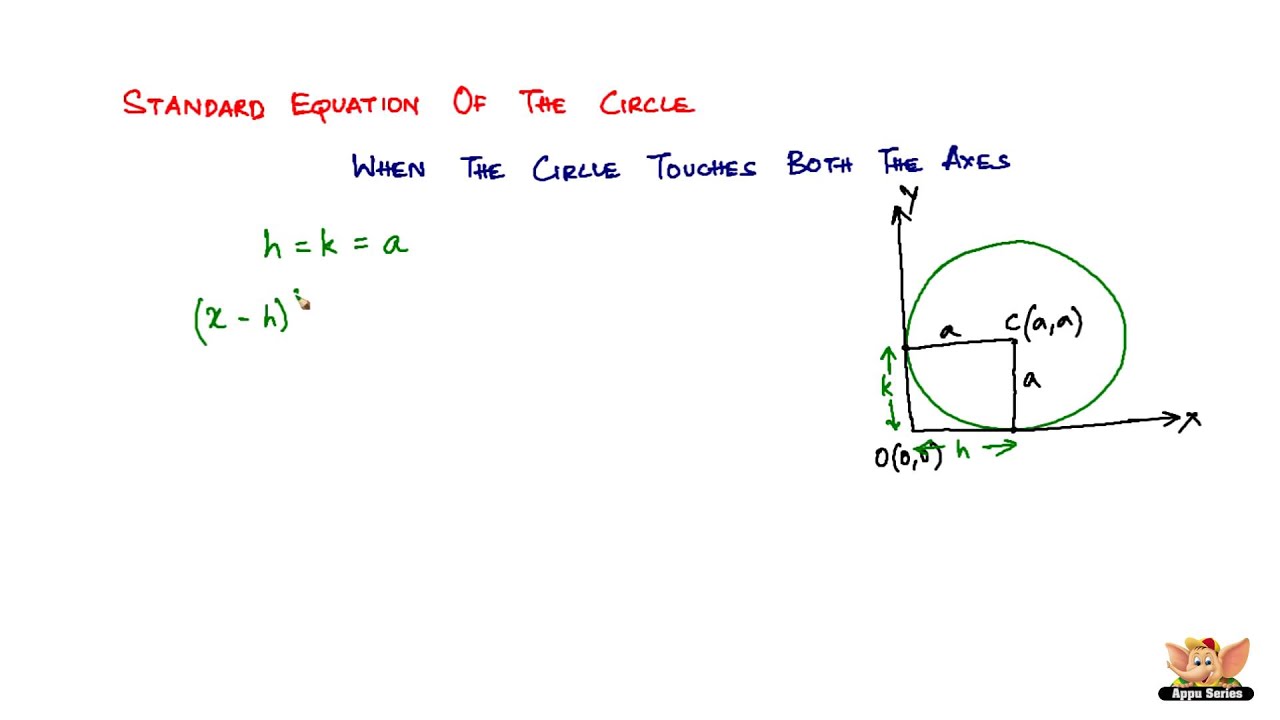 STANDARD EQUATION OF THE CIRCLE
WHEN THE CIRCLE TOUCHES BOTH THE AXES
h = k = a
(x - h)
Y
a
C(a,a)
a
k
X
O(0,0)
h
Appu Series